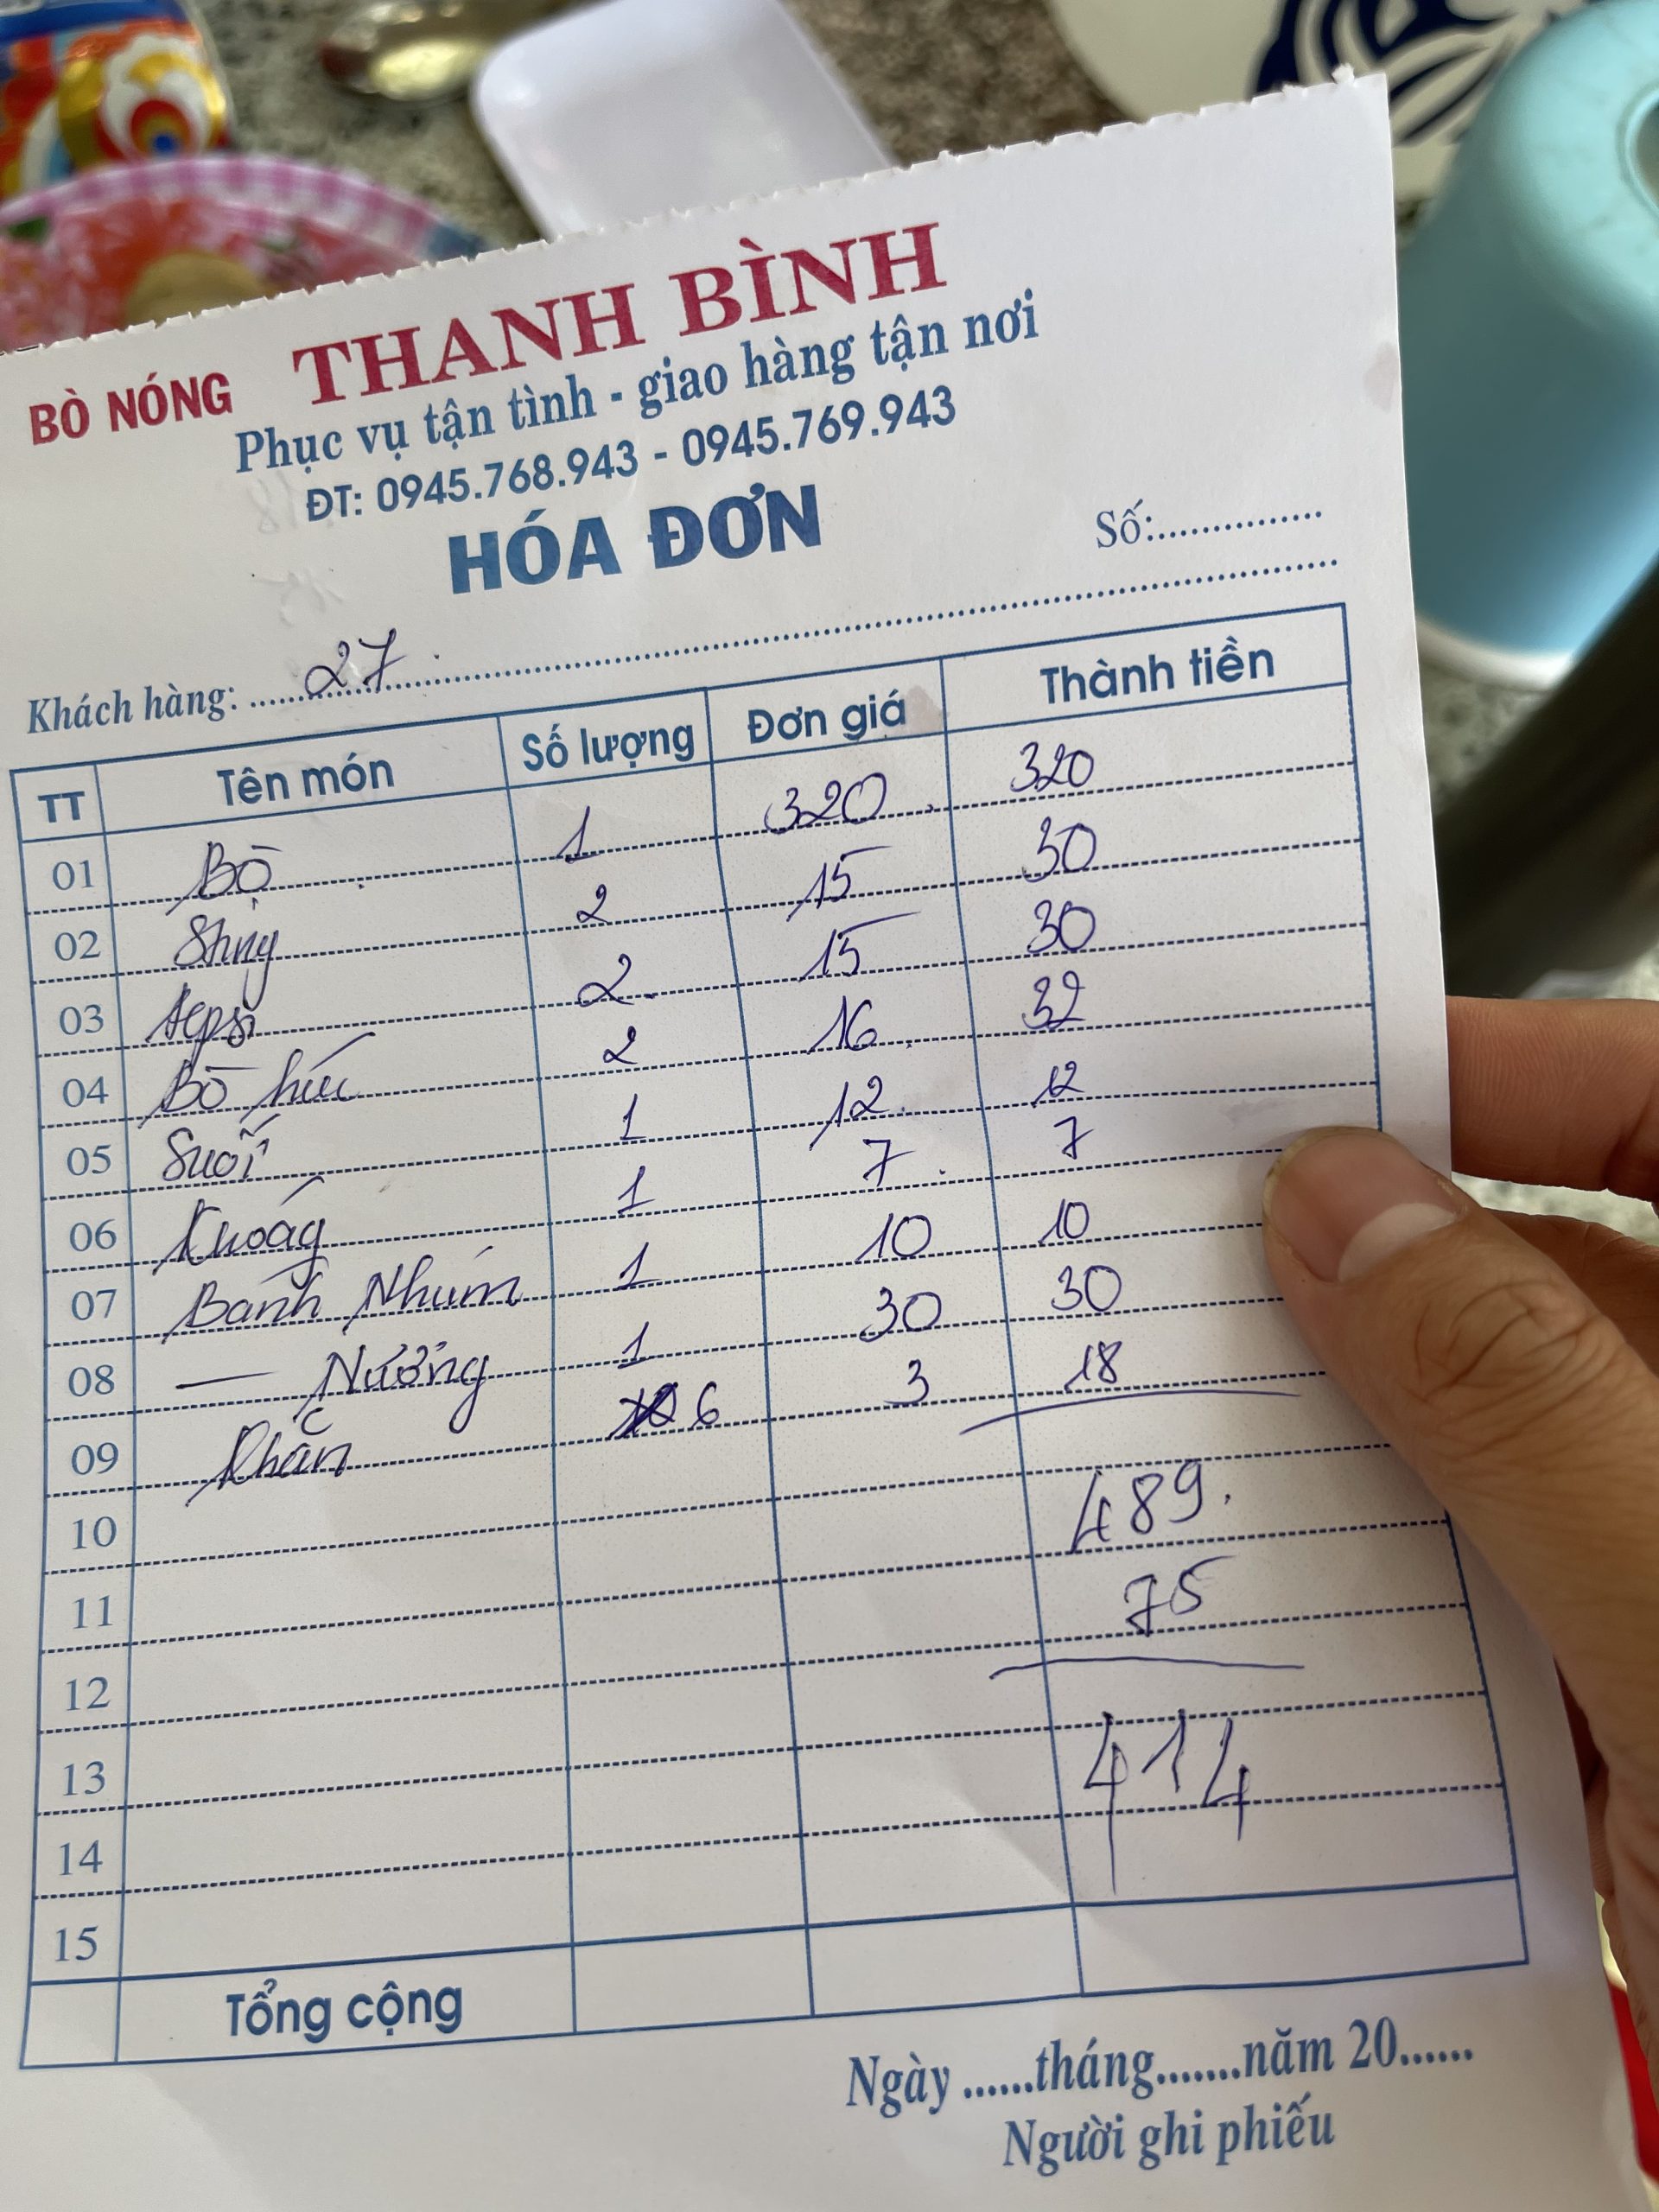 BÒ NÓNG THANH BÌNH
Phục vụ tận tình - giao hàng tận nơi
ĐT: 0945.768.943 - 0945.769.943
HÓA ĐƠN
Số:...............
Khách hàng: 27
TT Tên món Số lượng Đơn giá Thành tiền
01 Bò 1 320 320
02 Sting 2 15 30
03 Pepsi 2 15 30
04 Bò húc 2 16 32
05 Suối 1 12 12
06 Khoáng 1 7 7
07 Bánh Nhúm 1 10 10
08 — Nướng 1 30 30
09 Khăn 6 3 18
10 489.
11 75
12
13 414
14
15
Tổng cộng
Ngày ......tháng.......năm 20......
Người ghi phiếu